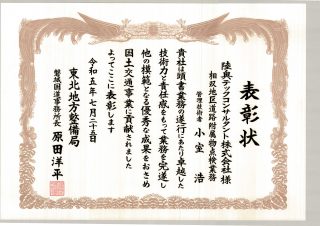 表彰状
陸奥テックコンサルタント株式会社様
相双地区道路附属物点検業務
管理技術者 小室 浩
貴社は頭書業務の遂行にあたり卓越した
技術力と責任感をもって業務を完遂し
他の模範となる優秀な成果をおさめ
国土交通事業に貢献されました
よってここに表彰します
令和五年七月二十五日
東北地方整備局
磐城国道事務所長 原田洋平